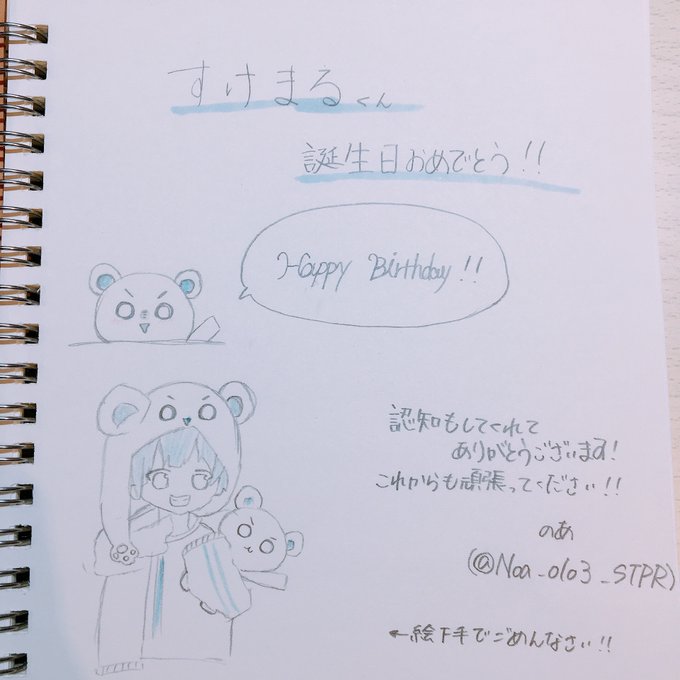 すけまるくん
誕生日おめでとう!!
Happy Birthday!!
認知もしてくれて
ありがとうございます!
これからも頑張ってください!!
のあ
(@Noa_0103_STPR)
←絵下手でごめんなさい!!